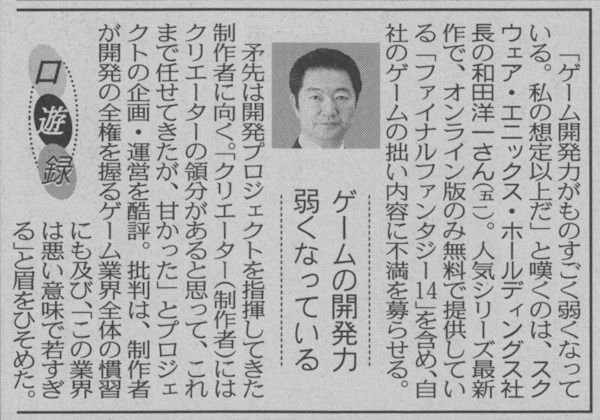 「ゲーム開発力がものすごく弱くなって
いる。私の想定以上だ」と嘆くのは、スク
ウェア・エニックス・ホールディングス社
長の和田洋一さん(五一)。人気シリーズ最新
作で、オンライン版のみ無料で提供してい
る「ファイナルファンタジー14」を含め、自
社のゲームの拙い内容に不満を募らせる。
ゲームの開発力
弱くなっている
矛先は開発プロジェクトを指揮してきた
制作者に向く。「クリエーター(制作者)には
クリエーターの領分があると思って、これ
まで任せてきたが、甘かった」とプロジェ
クトの企画・運営を酷評。批判は、制作者
が開発の全権を握るゲーム業界全体の慣習
にも及び、「この業界
は悪い意味で若すぎ
る」と眉をひそめた。
口遊録